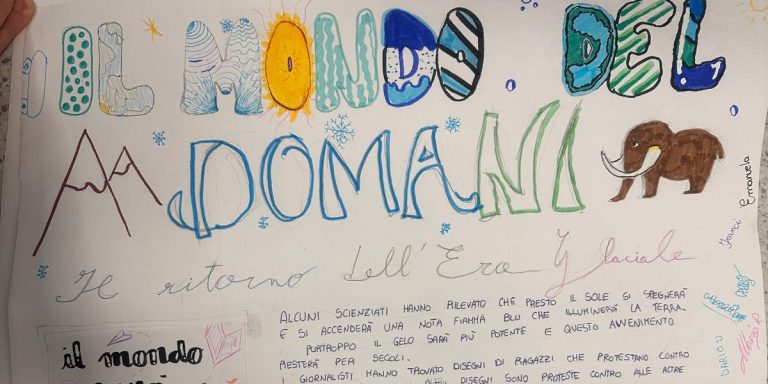 IL MONDO DEL
DOMANI
Il ritorno dell'Era Glaciale
ALCUNI SCIENZIATI HANNO RILEVATO CHE PRESTO IL SOLE SI SPEGNERÀ
E SI ACCENDERÀ UNA NOTA FIAMMA BLU CHE ILLUMINERÀ LA TERRA.
PURTROPPO IL GELO SARÀ PIÙ POTENTE E QUESTO AVVENIMENTO
RESTERÀ PER SECOLI.
I GIORNALISTI HANNO TROVATO DISEGNI DI RAGAZZI CHE PROTESTANO CONTRO
DISEGNI SONO PROTESTE CONTRO ALLE ALTRE
il mondo
Emanuela
DARIO